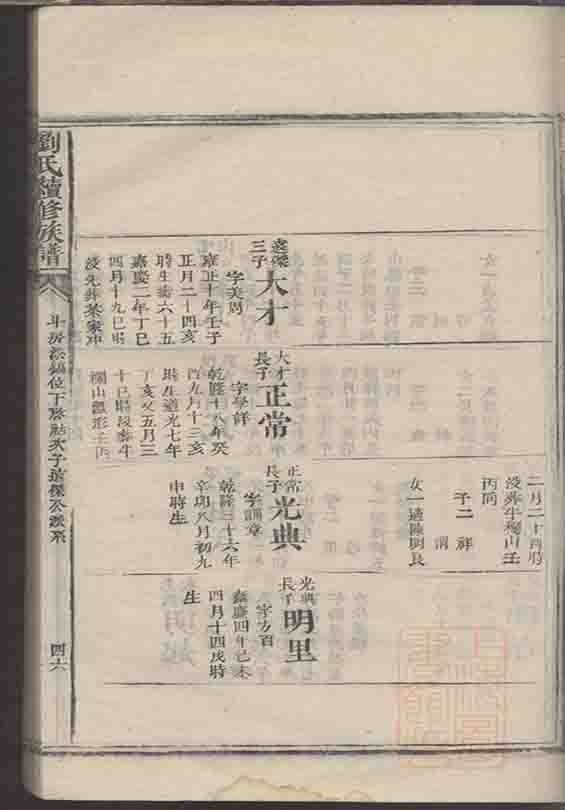 二月二十酉時
歿葬牛欄山壬
丙向
子二 祥
謂
女一適陳明良
達傑
三子
大才
字美周
雍正十年壬子
正月二十四亥
時生壽六十五
嘉慶二年丁巳
四月十九巳時
歿先葬茶家冲
大才
長子
正常
字學詳
乾隆十八年癸
酉九月十三亥
時生道光七年
丁亥又五月三
十巳時歿葬牛
欄山瓢形壬丙
正常
長子
光典
字謂章
乾隆三十六年
辛卯八月初九
申時生
光典
長子
明里
字方百
嘉慶四年己未
四月十四戌時
生
劉氏續修族譜
四六